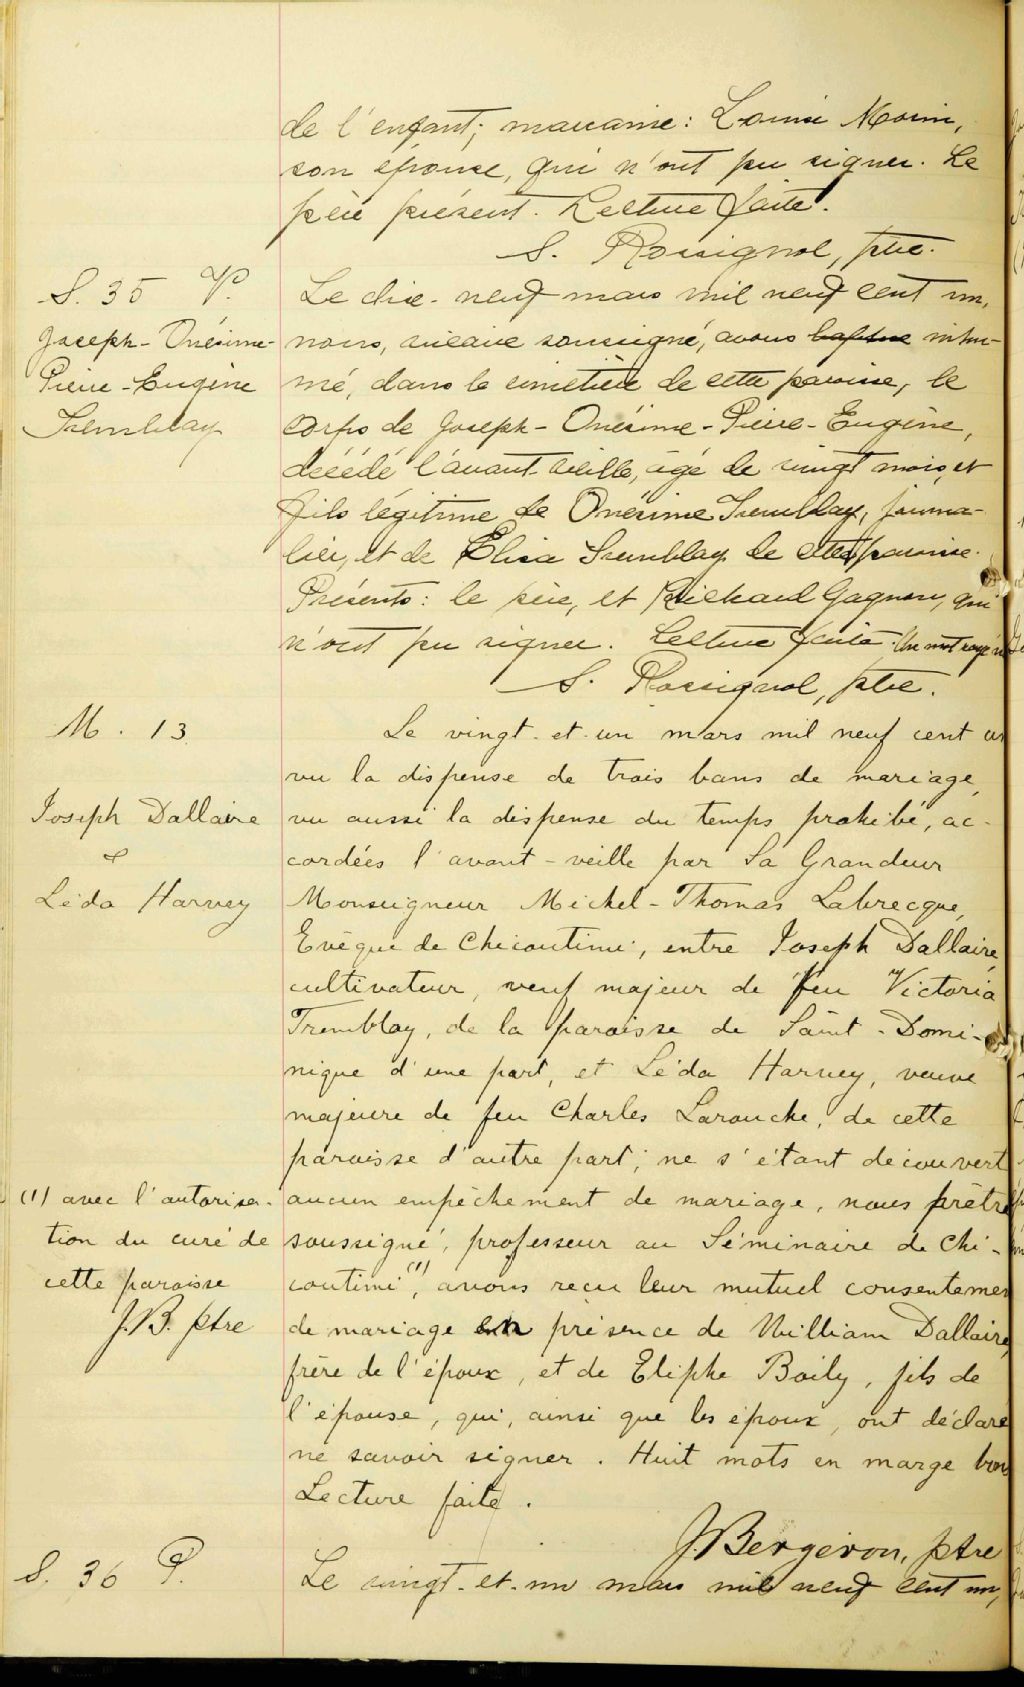 de l'enfant; marraine: Louise Morin,
son épouse, qui n'ont pu signer. Le
père présent. Lecture faite.
S. Rossignol, ptre.
S. 35 P.
Joseph-Onésime-
Pierre-Eugène
Tremblay
Le dix-neuf mars mil neuf cent un,
nous, vicaire soussigné, avons baptisé inhu-
mé, dans le cimetière de cette paroisse, le
corps de Joseph-Onésime-Pierre-Eugène,
décédé l'avant-veille, âgé de vingt mois, et
fils légitime de Onésime Tremblay, journa-
lier, et de Elisa Tremblay de cette paroisse.
Présents: le père, et Richard Gagnon, qui
n'ont pu signer. Lecture faite. Un mot rayé nul
S. Rossignol, ptre.
M. 13
Joseph Dallaire
&
Léda Harvey
Le vingt-et-un mars mil neuf cent un
vu la dispense de trois bans de mariage,
vu aussi la dispense du temps prohibé, ac-
cordées l'avant-veille par Sa Grandeur
Monseigneur Michel-Thomas Labrecque,
Evêque de Chicoutimi, entre Joseph Dallaire,
cultivateur, veuf majeur de feu Victoria
Tremblay, de la paroisse de Saint-Domi-
nique d'une part, et Léda Harvey, veuve
majeure de feu Charles Larouche, de cette
paroisse d'autre part; ne s'étant découvert
aucun empêchement de mariage, nous prêtre
soussigné, professeur au Séminaire de Chi-
coutimi (1), avons reçu leur mutuel consentement
de mariage en présence de William Dallaire,
frère de l'époux, et de Eliphe Boily, fils de
l'épouse, qui, ainsi que les époux, ont déclaré
ne savoir signer. Huit mots en marge bons
Lecture faite.
J. Bergeron, ptre
(1) avec l'autorisa-
tion du curé de
cette paroisse
J.B. ptre
S. 36 P.
Le vingt-et-un mars mil neuf cent un,